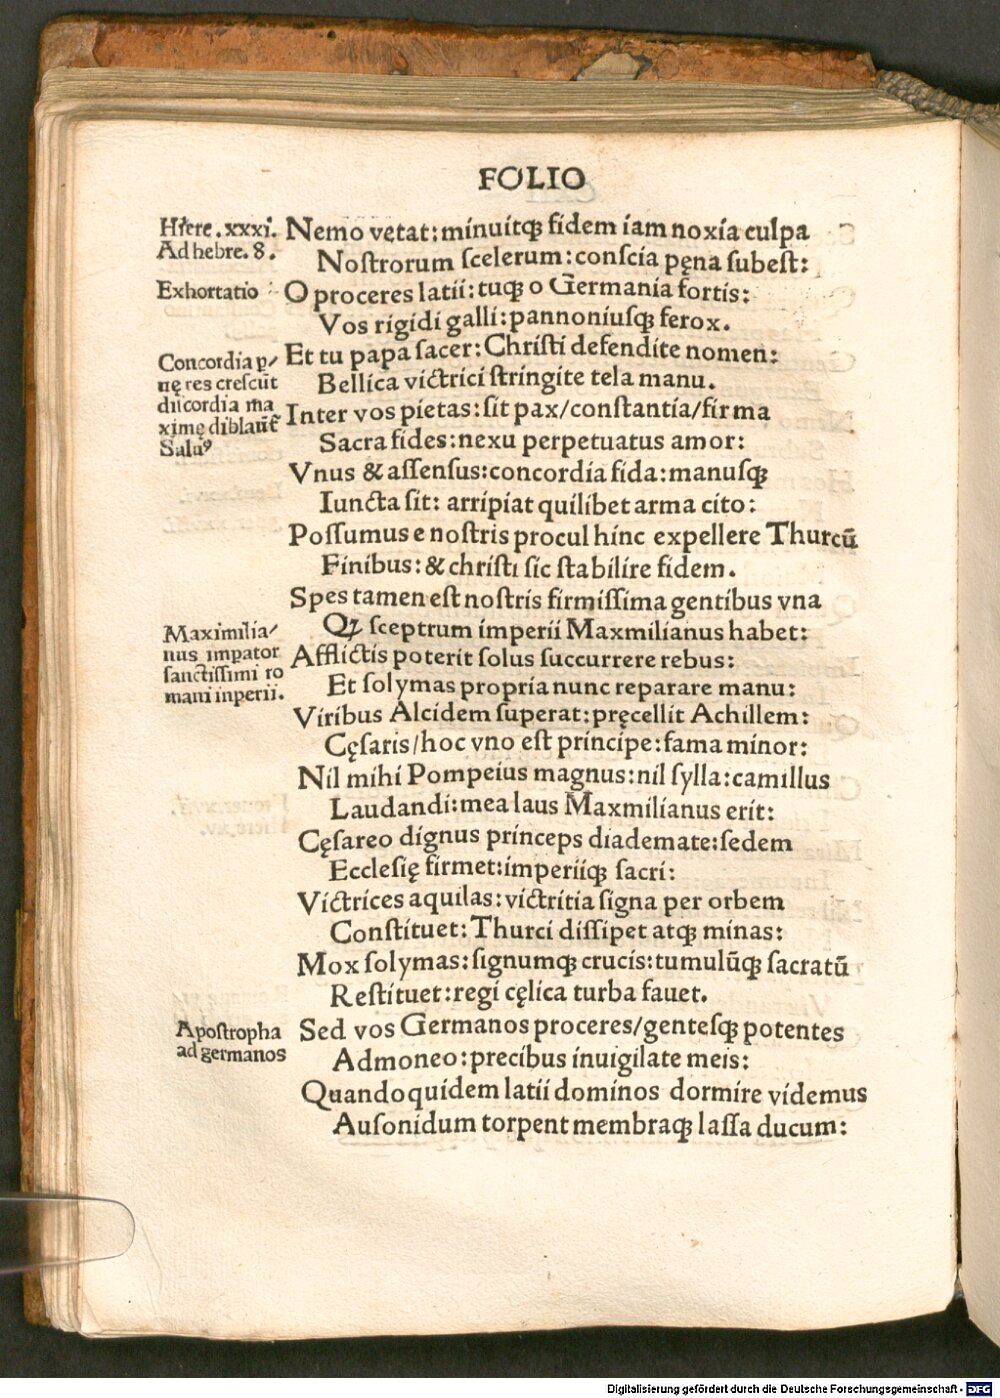 FOLIO
Hiere. xxxi.
Ad hebre. 8.
Nemo vetat: minuitqꝫ fidem iam noxia culpa
Nostrorum scelerum: conscia pęna subest:
Exhortatio
O proceres latii: tuqꝫ o Germania fortis:
Vos rigidi galli: pannoniusqꝫ ferox.
Concordia p/
nę res crescūt
discordia ma
ximę dilabūt
Salu⁹
Et tu papa sacer: Christi defendite nomen:
Bellica victrici stringite tela manu.
Inter vos pietas: sit pax/constantia/firma
Sacra fides: nexu perpetuatus amor:
Vnus & assensus: concordia fida: manusqꝫ
Iuncta sit: arripiat quilibet arma cito:
Possumus e nostris procul hinc expellere Thurcū
Finibus: & christi sic stabilire fidem.
Spes tamen est nostris firmissima gentibus vna
Maximilia/
nus impator
sanctissimi ro
mani inperii.
Qꝫ sceptrum imperii Maxmilianus habet:
Afflictis poterit solus succurrere rebus:
Et solymas propria nunc reparare manu:
Viribus Alcidem superat: pręcellit Achillem:
Cęsaris/hoc vno est principe: fama minor:
Nil mihi Pompeius magnus: nil sylla: camillus
Laudandi: mea laus Maxmilianus erit:
Cęsareo dignus princeps diademate: sedem
Ecclesię firmet: imperiiqꝫ sacri:
Victrices aquilas: victritia signa per orbem
Constituet: Thurci dissipet atqꝫ minas:
Mox solymas: signumqꝫ crucis: tumulūqꝫ sacratū
Restituet: regi cęlica turba fauet.
Apostropha
ad germanos
Sed vos Germanos proceres/gentesqꝫ potentes
Admoneo: precibus inuigilate meis:
Quandoquidem latii dominos dormire videmus
Ausonidum torpent membraqꝫ lassa ducum:
Digitalisierung gefördert durch die Deutsche Forschungsgemeinschaft - DFG